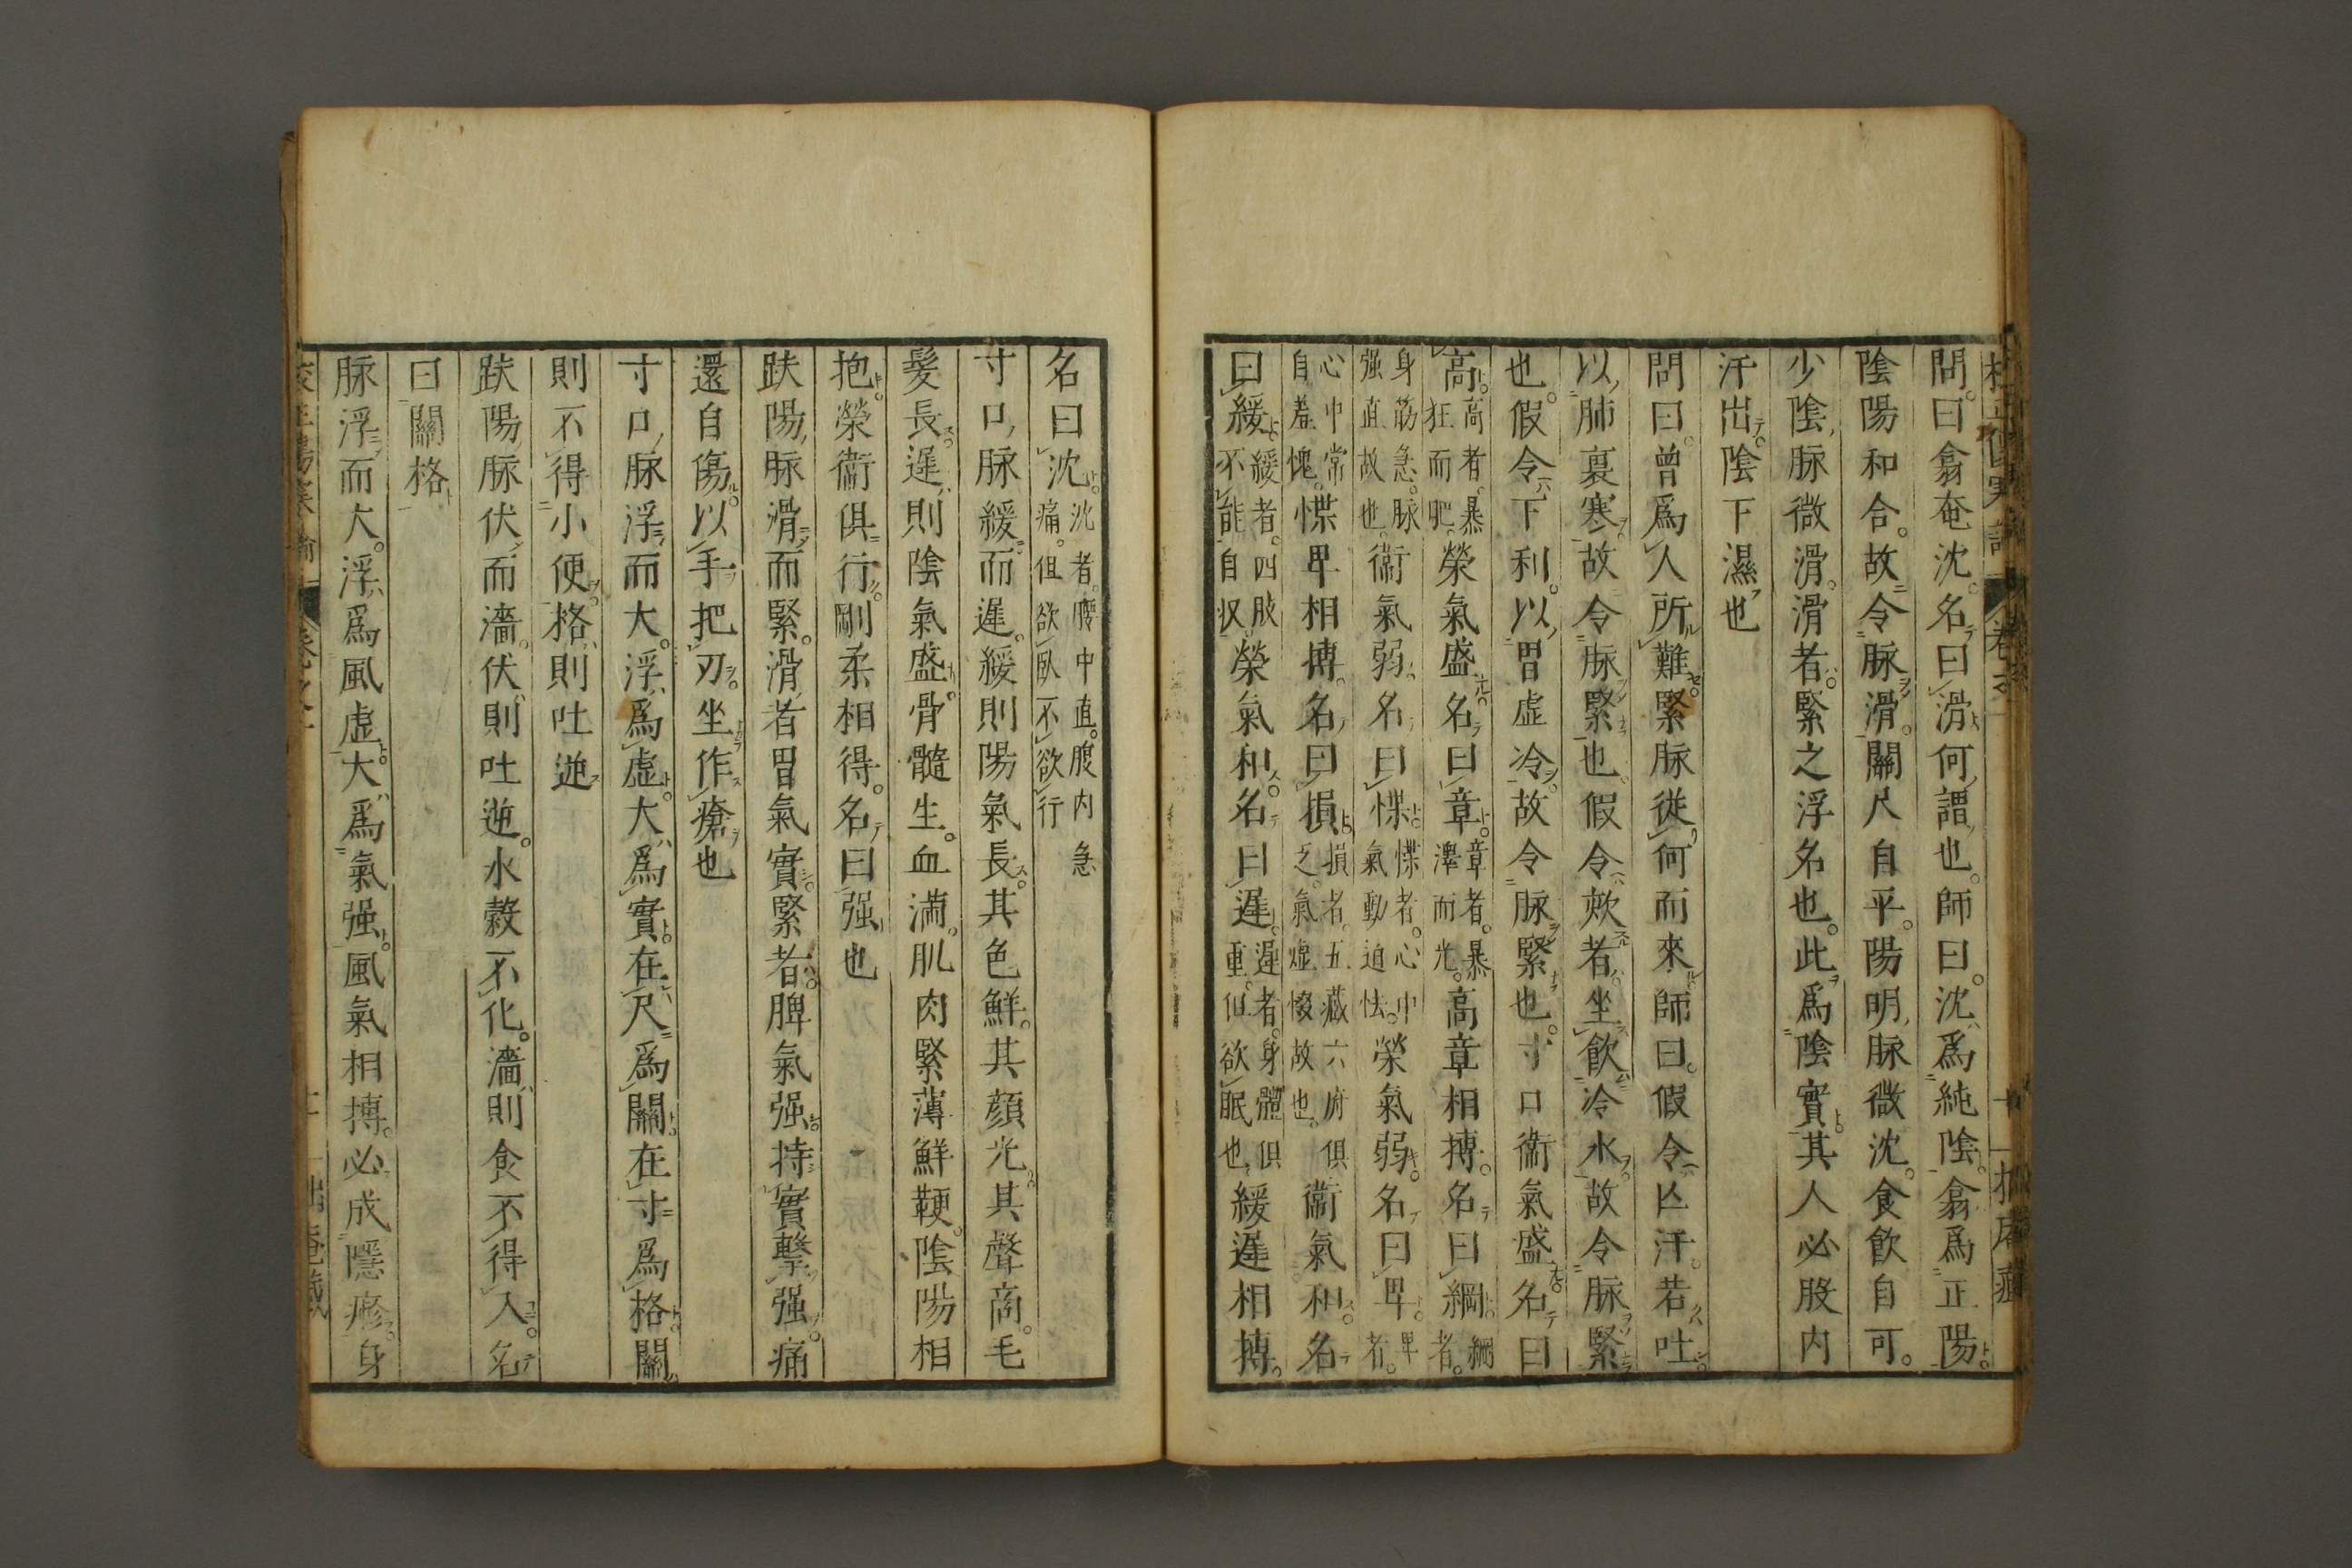 問曰翕奄沈名曰滑何謂也師曰沈爲純陰翕爲正陽
陰陽和合故令脉滑關尺自平陽明脉微沈食飲自可
少陰脉微滑滑者緊之浮名也此爲陰實其人必股内
汗出陰下濕也
問曰曾爲人所難緊脉從何而來師曰假令亾汗若吐
以肺裏寒故令脉緊也假令欬者坐飲冷水故令脉緊
也假令下利以胃虚冷故令脉緊也寸口衞氣盛名曰
高高者暴狂而肥榮氣盛名曰章章者暴澤而光高章相搏名曰綱綱者
身筋急脉强直故也衞氣弱名曰惵惵者心中氣動迫怯榮氣弱名曰卑卑者
心中常自羞愧惵卑相搏名曰損損者五藏六府俱乏氣虚惙故也衞氣和名
曰緩緩者四肢不能自収榮氣和名曰遲遲者身體俱重但欲眠也緩遲相搏
名曰沈沈者腰中直腹内急痛但欲臥不欲行
寸口脉緩而遲緩則陽氣長其色鮮其顔光其聲商毛
髮長遲則陰氣盛骨髓生血満肌肉緊薄鮮鞕陰陽相
抱榮衞俱行剛柔相得名曰强也
趺陽脉滑而緊滑者胃氣實緊者脾氣强持實擊强痛
還自傷以手把刃坐作瘡也
寸口脉浮而大浮爲虚大爲實在尺爲關在寸爲格關
則不得小便格則吐逆
趺陽脉伏而濇伏則吐逆水穀不化濇則食不得入名
曰關格
脉浮而大浮爲風虚大爲氣强風氣相搏必成隱疹身